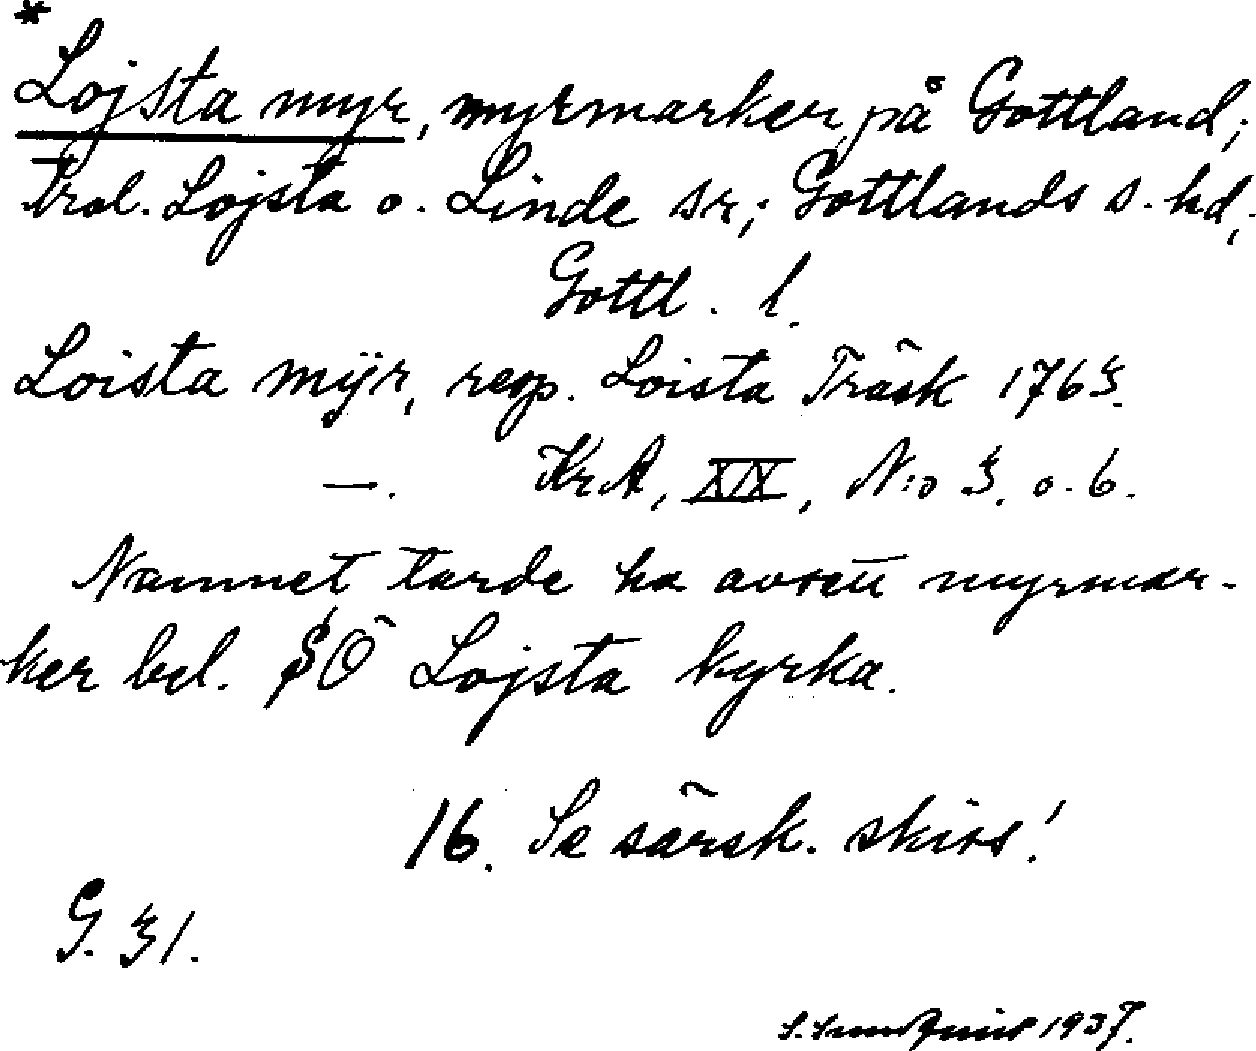 *
Lojsta myr, myrmarker på Gottland;
trol. Lojsta o. Linde sr; Gottlands s. hd,
Gottl. l.
Loista mÿr, resp. Loista Träsk 1763.
—. KrA, XIX, N:o 3. o. 6.
Namnet torde ha avsett myrmar-
ker bel. SÖ Lojsta kyrka.
16. Se särsk. skiss!
G. 31.
1937.